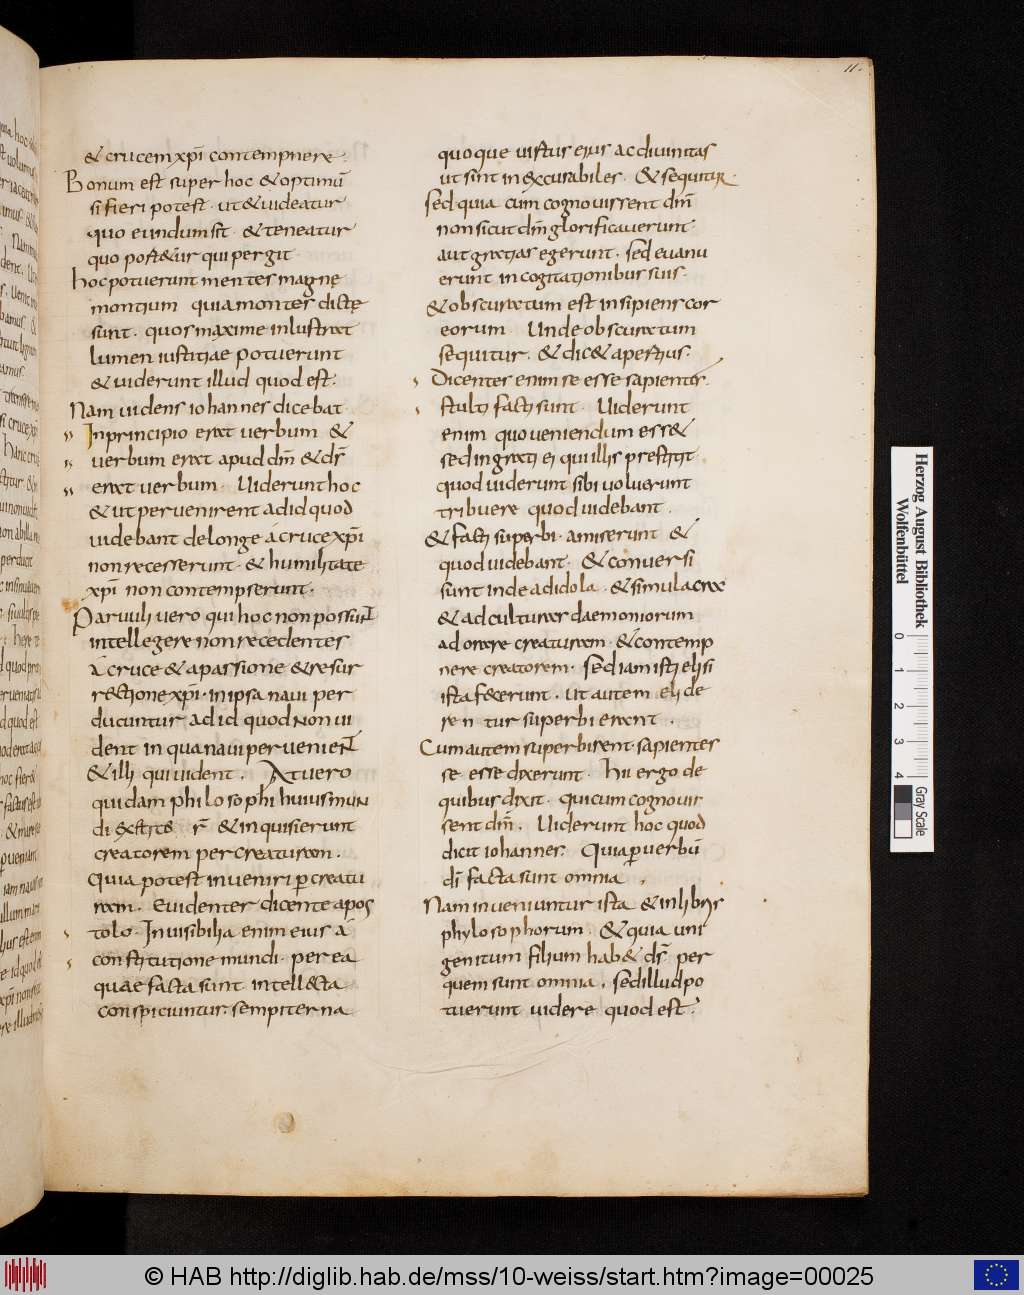 11.
& crucem xp̄i contempnere.
Bonum est super hoc & optimū
si fieri potest. ut & videatur
quo eundum sit. & teneatur
quo post&ur qui pergit.
hoc potuerunt mentes magnę
montium quia montes dictę
sunt. quos maxime inlustrat
lumen iustitiae potuerunt
& uiderunt illud quod est.
Nam uidens iohannes dicebat
In principio erat uerbum &
uerbum erat apud dm̄ & ds̄
erat uerbum. Uiderunt hoc
& ut peruenirent ad id quod
uidebant de longe a cruce xp̄i
non recesserunt. & humilitate
xp̄i non contempserunt.
Paruuli uero qui hoc non possunt
intellegere non recedentes
a cruce & a passione & resur
rectione xp̄i. in ipsa naui per
ducuntur ad id quod non ui
dent in qua naui perueniunt
& illi qui uident. At uero
quidam philosophi huius mun
di & inquisierunt
creatorem per creaturam.
Quia potest inueniri p creatu
ram. Euidenter dicente apos
tolo. Inuisibilia enim eius a
constitutione mundi. per ea
quae facta sunt. intellecta
conspiciuntur. sempiterna
quoque uirtus eius ac diuinitas
ut sint inexcusabiles. & sequitur.
sed quia cum cognouissent dm̄
non sicut dm̄ glorificauerunt.
aut gratias egerunt. sed euanu
erunt in cogitationibus suis.
& obscuratum est insipiens cor
eorum. Unde obscuratum
sequitur. & dic& apertius.
Dicentes enim se esse sapientes.
stulti facti sunt. Uiderunt
enim quo ueniendum ess&
sed ingrati ei qui illis prestitit
quod uiderunt sibi uoluerunt
tribuere quod uidebant.
& facti superbi. amiserunt &
quod uidebant. & conuersi
sunt inde ad idola. & simulacra
& ad culturas daemoniorum
adorare creaturam. & contemp
nere creatorem. Sed iam isti elisi
ista fecerunt. ut autem eli de
ren tur superbi erant.
Cum autem superbirent. sapientes
se esse dixerunt. Hii ergo de
quibus dixit. qui cum cognouis
sent dm̄. Uiderunt hoc quod
dicit iohannes. Quia p uerbū
dī facta sunt omnia.
Nam inueniuntur ista & in libris
phylosophorum. & quia uni
genitum filium hab& ds̄ per
quem sunt omnia. sed illud po
tuerunt uidere quod est.
Herzog August Bibliothek
Wolfenbüttel
0 1 2 3 4
Gray Scale
© HAB http://diglib.hab.de/mss/10-weiss/start.htm?image=00025